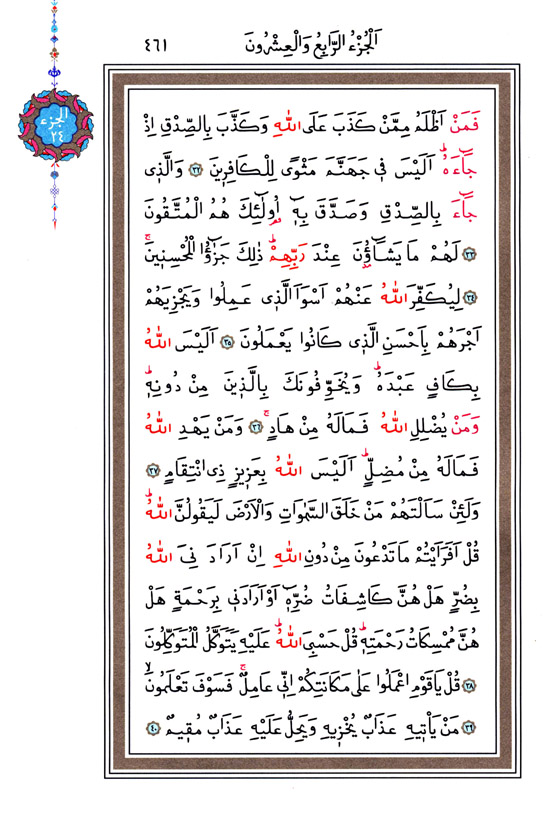 اَلْجُزْءُ الرَّابِعُ وَالْعِشْرُونَ
٤٦١
الجزء
٢٤
فَمَنْ اَظْلَمُ مِمَّنْ كَذَبَ عَلَى اللّٰهِ وَكَذَّبَ بِالصِّدْقِ اِذْ
جَٓاءَهُۜ اَلَيْسَ ف۪ي جَهَنَّمَ مَثْوًى لِلْكَافِر۪ينَ ﴿٣٢﴾ وَالَّذ۪ي
جَٓاءَ بِالصِّدْقِ وَصَدَّقَ بِه۪ٓ اُو۬لٰٓئِكَ هُمُ الْمُتَّقُونَ
﴿٣٣﴾ لَهُمْ مَا يَشَٓاؤُ۫نَ عِنْدَ رَبِّهِمْۜ ذٰلِكَ جَزٰٓؤُا الْمُحْسِن۪ينَۚ
﴿٣٤﴾ لِيُكَفِّرَ اللّٰهُ عَنْهُمْ اَسْوَاَ الَّذ۪ي عَمِلُوا وَيَجْزِيَهُمْ
اَجْرَهُمْ بِاَحْسَنِ الَّذ۪ي كَانُوا يَعْمَلُونَ ﴿٣٥﴾ اَلَيْسَ اللّٰهُ
بِكَافٍ عَبْدَهُۜ وَيُخَوِّفُونَكَ بِالَّذ۪ينَ مِنْ دُونِه۪ۜ
وَمَنْ يُضْلِلِ اللّٰهُ فَمَا لَهُ مِنْ هَادٍۚ ﴿٣٦﴾ وَمَنْ يَهْدِ اللّٰهُ
فَمَا لَهُ مِنْ مُضِلٍّۜ اَلَيْسَ اللّٰهُ بِعَز۪يزٍ ذِي انْتِقَامٍ ﴿٣٧﴾
وَلَئِنْ سَاَلْتَهُمْ مَنْ خَلَقَ السَّمٰوَاتِ وَالْاَرْضَ لَيَقُولُنَّ اللّٰهُۜ
قُلْ اَفَرَاَيْتُمْ مَا تَدْعُونَ مِنْ دُونِ اللّٰهِ اِنْ اَرَادَنِيَ اللّٰهُ
بِضُرٍّ هَلْ هُنَّ كَاشِفَاتُ ضُرِّه۪ٓ اَوْ اَرَادَن۪ي بِرَحْمَةٍ هَلْ
هُنَّ مُمْسِكَاتُ رَحْمَتِه۪ۜ قُلْ حَسْبِيَ اللّٰهُۜ عَلَيْهِ يَتَوَكَّلُ الْمُتَوَكِّلُونَ
﴿٣٨﴾ قُلْ يَا قَوْمِ اعْمَلُوا عَلٰى مَكَانَتِكُمْ اِنّ۪ي عَامِلٌۚ فَسَوْفَ تَعْلَمُونَۙ
﴿٣٩﴾ مَنْ يَأْت۪يهِ عَذَابٌ يُخْز۪يهِ وَيَحِلُّ عَلَيْهِ عَذَابٌ مُق۪يمٌ ﴿٤٠﴾